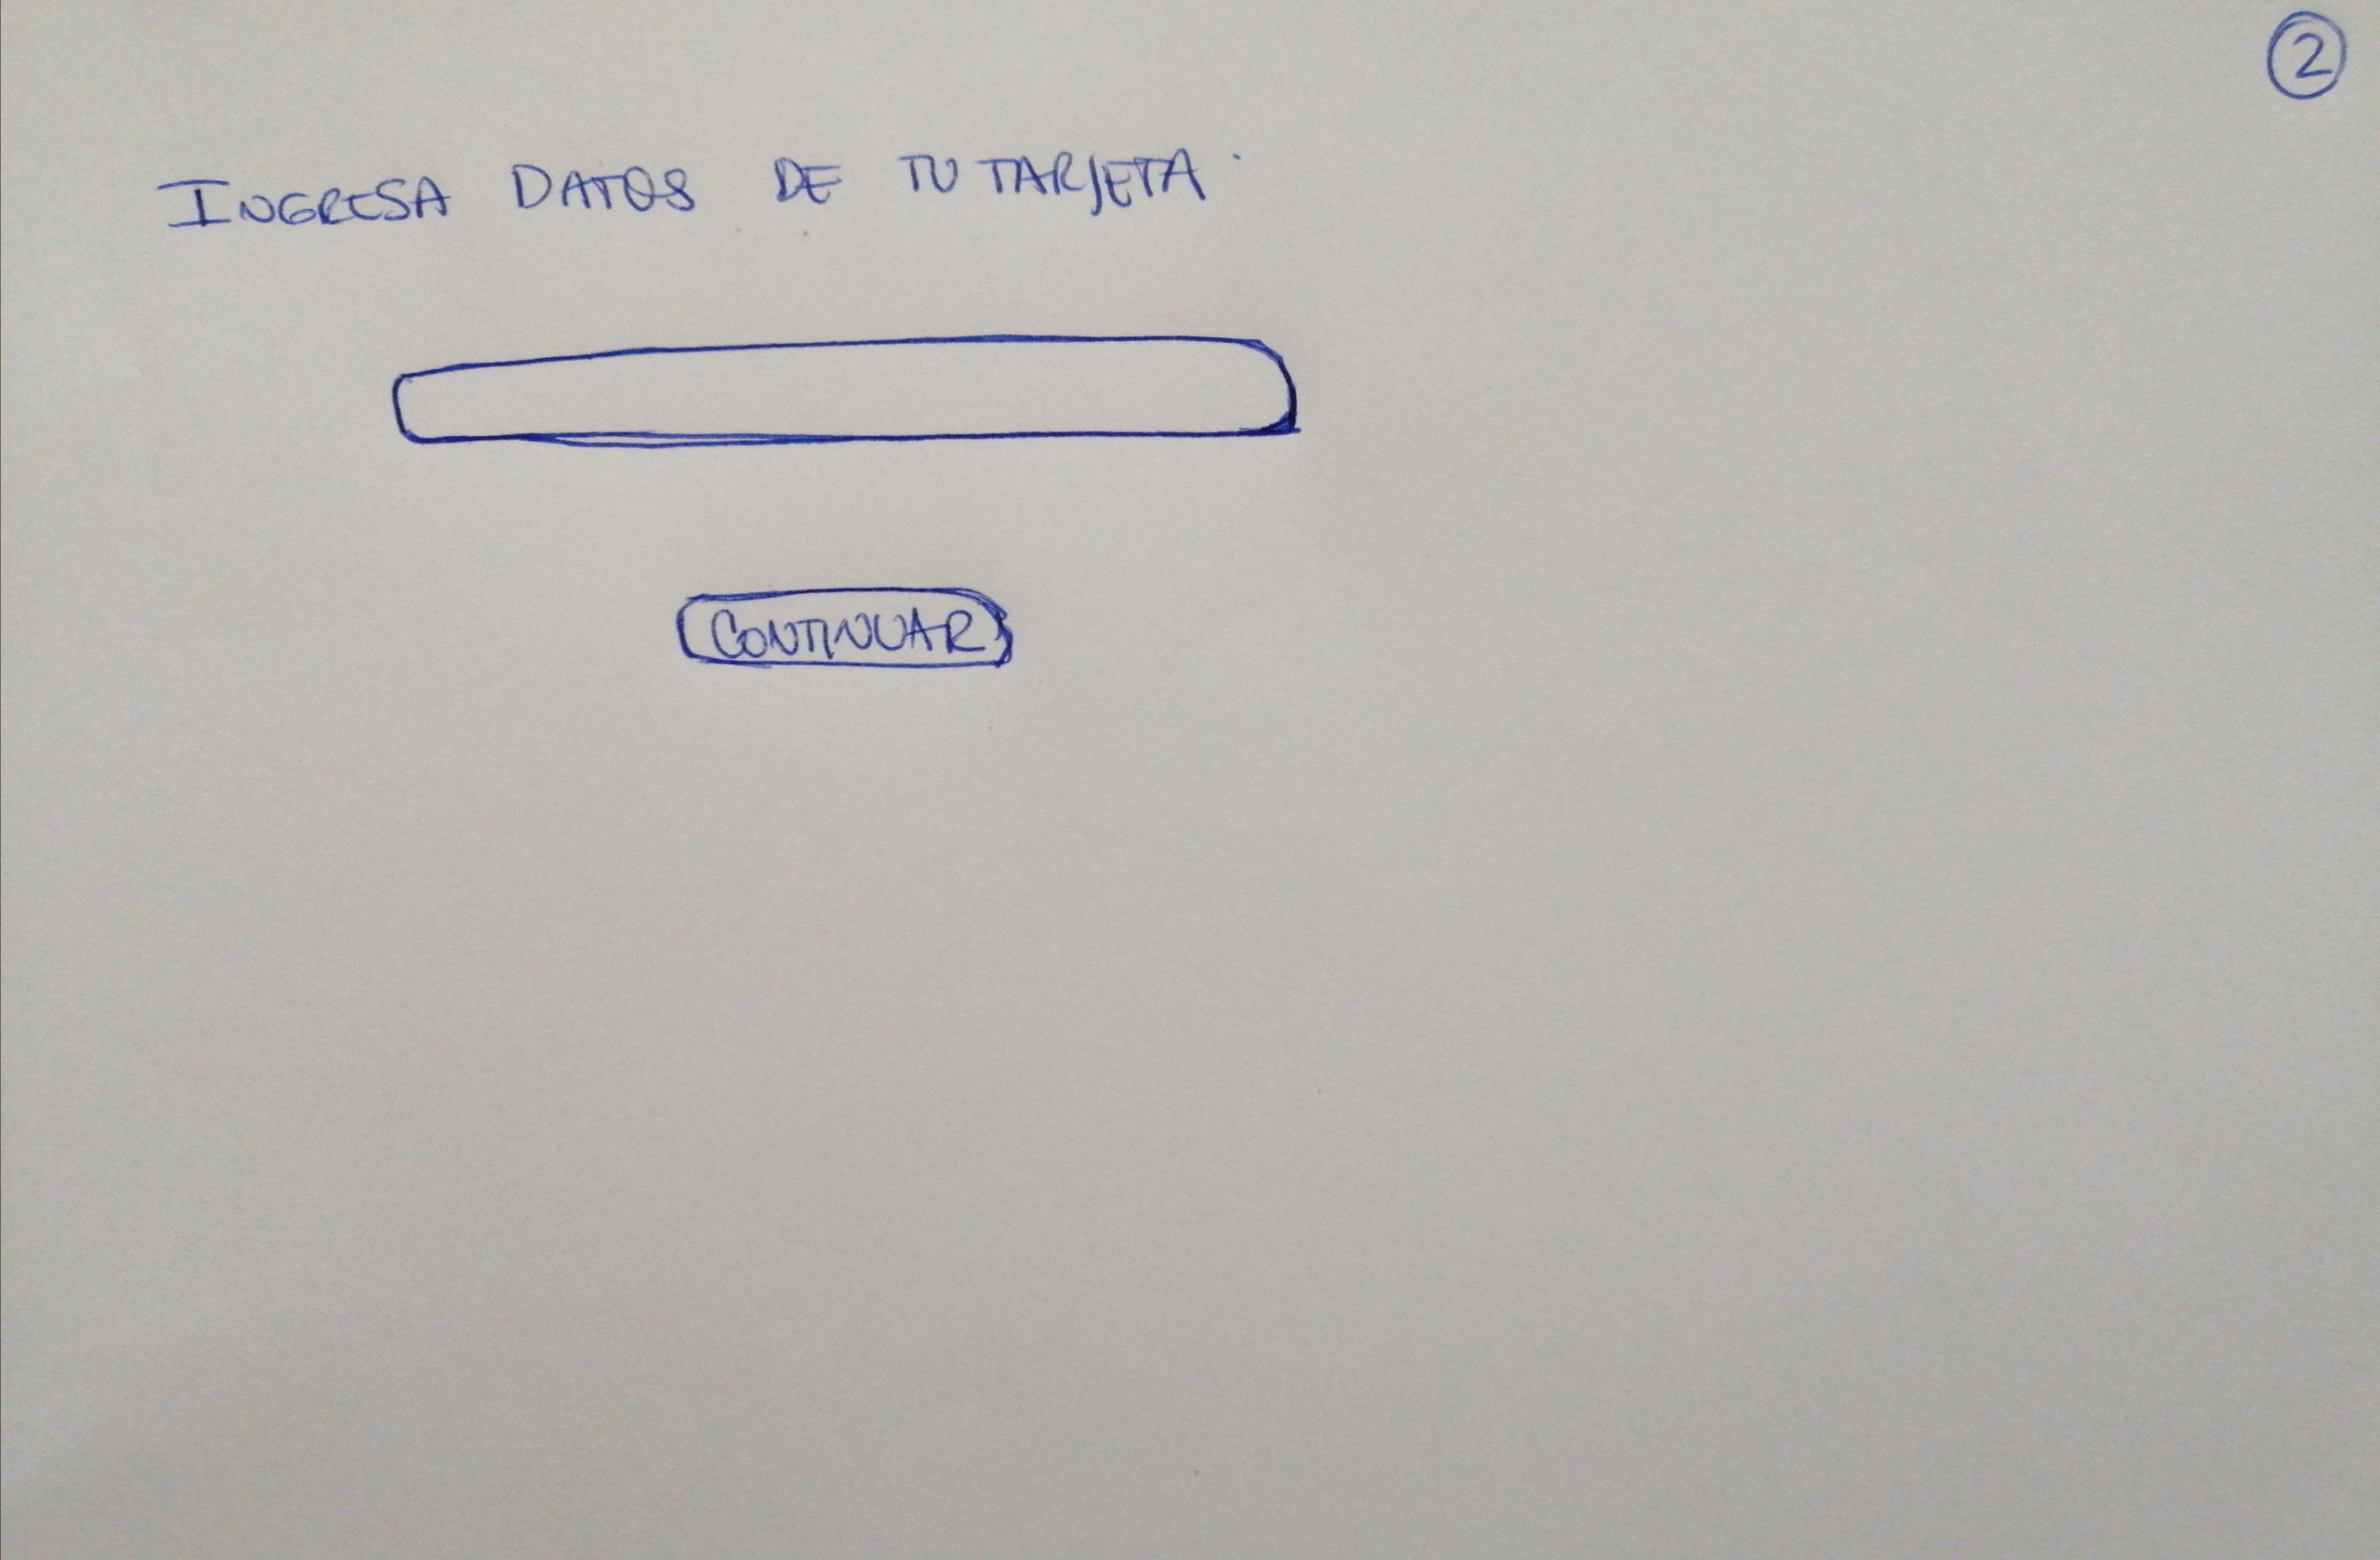 2
INGRESA DATOS DE TU TARJETA.
CONTINUAR